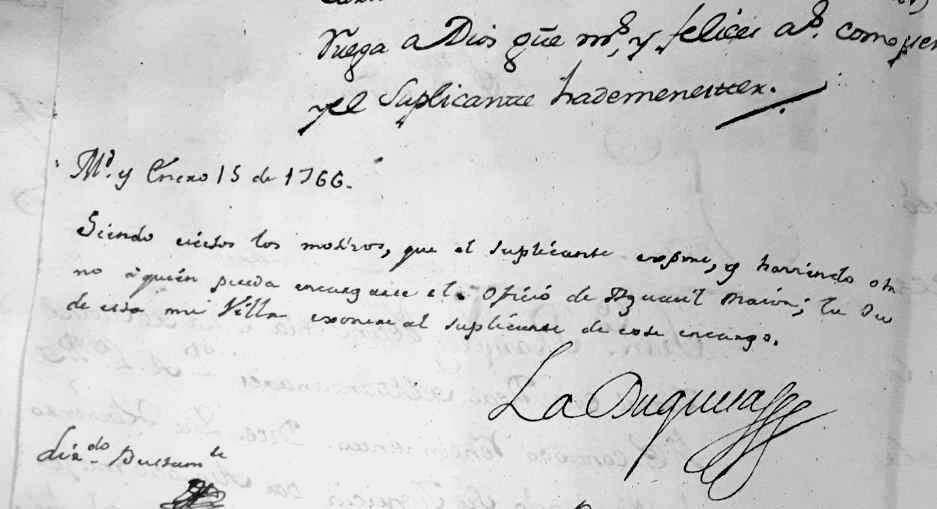 Ruega a Dios gũe ms. y felices as. como
y el Suplicante hademenester.
Md. y Enero 15 de 1766.
Siendo ciertos los motivos, que el suplicante expone, y haviendo
no à quien pueda encargarse el Oficio de Alguacil maior; la
de esta mi Villa exonere al suplicante de este encargo.
La Duquesa
Lizdo. Bustamte